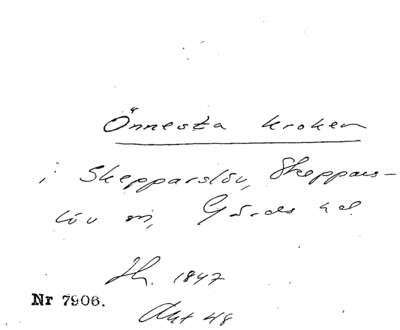 Önnesta kroken
i Skepparslöv, Skeppars-
löv sn, Gärds hd.
Jh. 1847
Nr 7906.
Akt 48